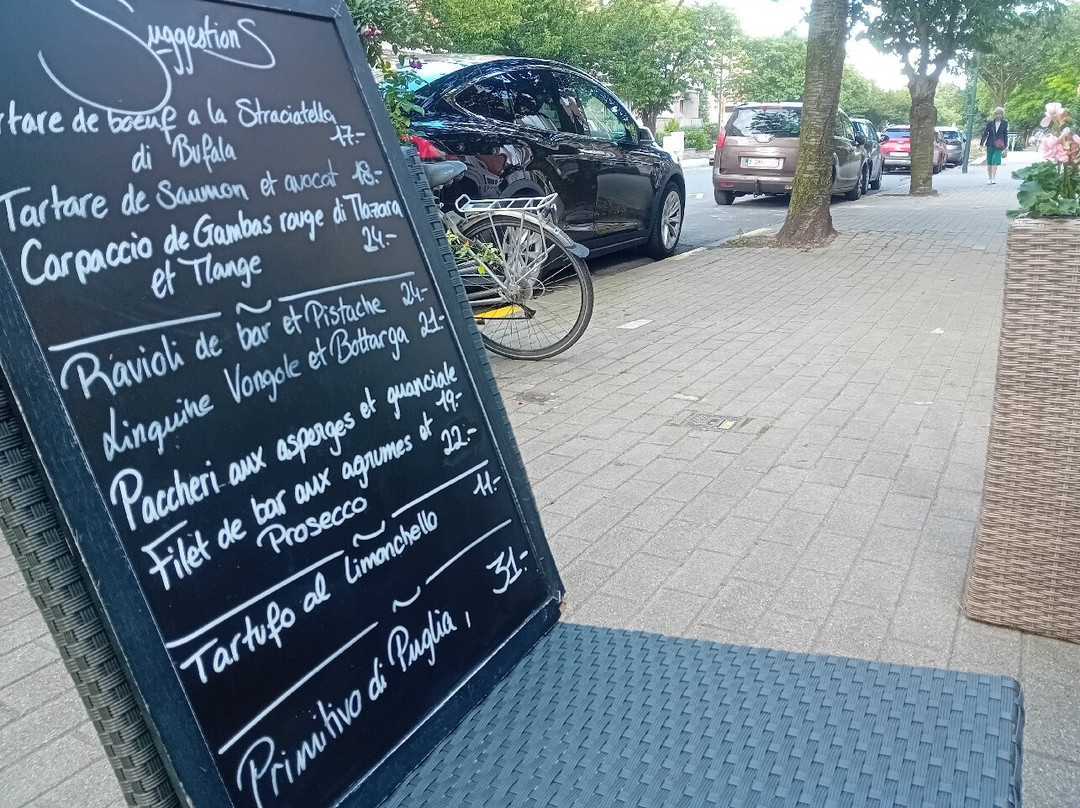 Suggestions
rtare de boeuf a la Straciatella
di Bufala 17.-
Tartare de Saumon et avocat 18.-
Carpaccio de Gambas rouge di Mazara
et Mange 24.-
Ravioli de bar et Pistache 24.-
Linguine Vongole et Bottarga 21.-
Paccheri aux asperges et guanciale
19.-
Filet de bar aux agrumes et
Prosecco 22.-
Tartufo al Limonchello 11.-
Primitivo di Puglia, 31.-